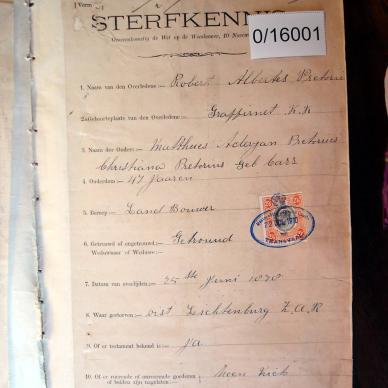 [Vorm
STERFKENNIS
0/16001
Overeenkomstig de Wet op de Weeskamer, 10 Novem
1. Naam van den Overledene:— Robert Albertes Pretorius
2. Geboorteplaats van den Overledene:— Graffirnet K.K
3. Naam der Ouders:— Mattheus Pretorius
Christiana Pretorius Geb Carr
4. Ouderdom:— 47 Jaaren
5. Beroep:— Land Bouwer
6. Getrouwd of ongetrouwd,
Weduwnaar of Weduwe:— Getrouwd
TRANSVAAL
7. Datum van overlijden:— 25ste Juni
8. Waar gestorven:— Dist Lichtenburg Z.A.R
9. Of er testament bekend is:— Ja
10. Of er roerende of onroerende goederen
of beiden zijn nagelaten:—